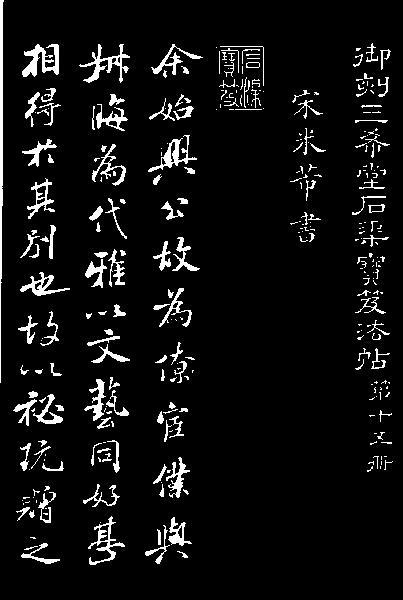 御刻三希堂石渠寶笈法帖 第十五冊
宋米芾書
石渠寶笈
余始興公故為僚宦僕與
叔晦為代雅以文藝同好甚
相得於其別也故以祕玩贈之